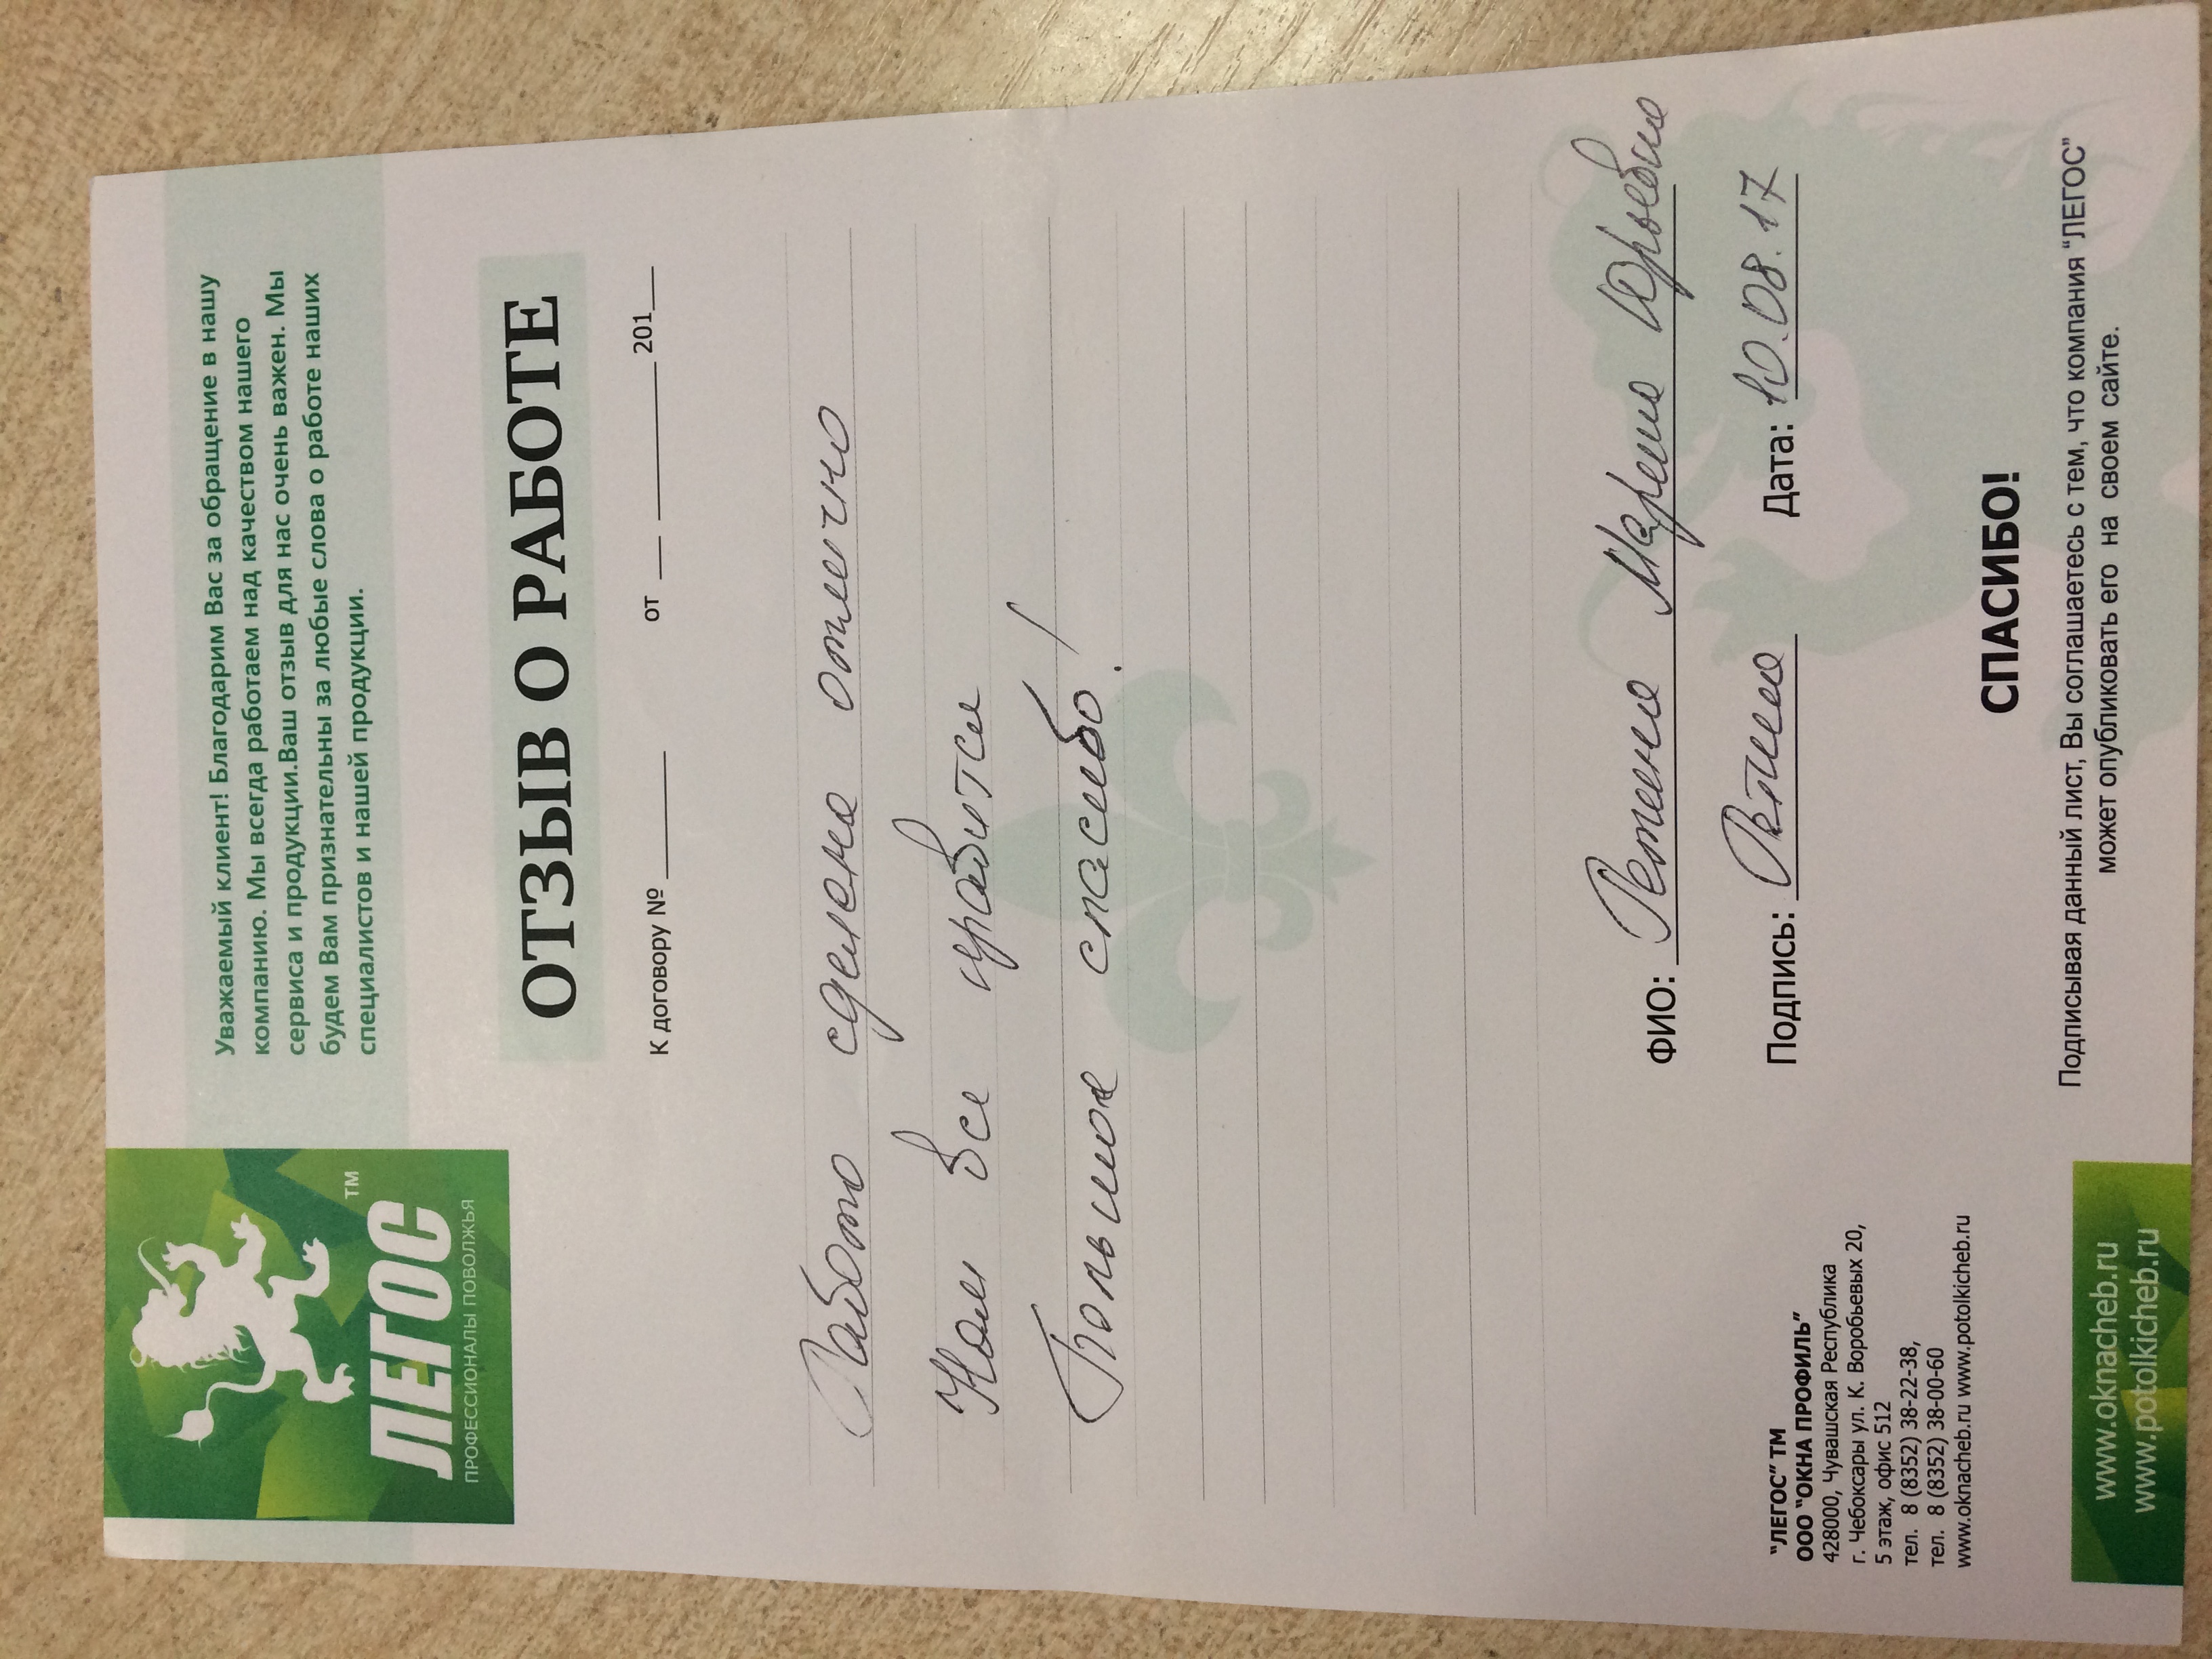 ЛЕГОС
TM
ПРОФЕССИОНАЛЫ ПОВОЛЖЬЯ
Уважаемый клиент! Благодарим Вас за обращение в нашу
компанию. Мы всегда работаем над качеством нашего
сервиса и продукции.Ваш отзыв для нас очень важен. Мы
будем Вам признательны за любые слова о работе наших
специалистов и нашей продукции.
ОТЗЫВ О РАБОТЕ
К договору № ______ от __ ______ 201__
Работа сделана отлично
Нам все нравится
Большое спасибо!
ФИО: Ретина Марина Юрьевна
Подпись: Ретина Дата: 10.08.17
"ЛЕГОС" ТМ
ООО "ОКНА ПРОФИЛЬ"
428000, Чувашская Республика
г. Чебоксары ул. К. Воробьевых 20,
5 этаж, офис 512
тел. 8 (8352) 38-22-38,
тел. 8 (8352) 38-00-60
www.oknacheb.ru www.potolkicheb.ru
СПАСИБО!
Подписывая данный лист, Вы соглашаетесь с тем, что компания "ЛЕГОС"
может опубликовать его на своем сайте.
www.oknacheb.ru
www.potolkicheb.ru